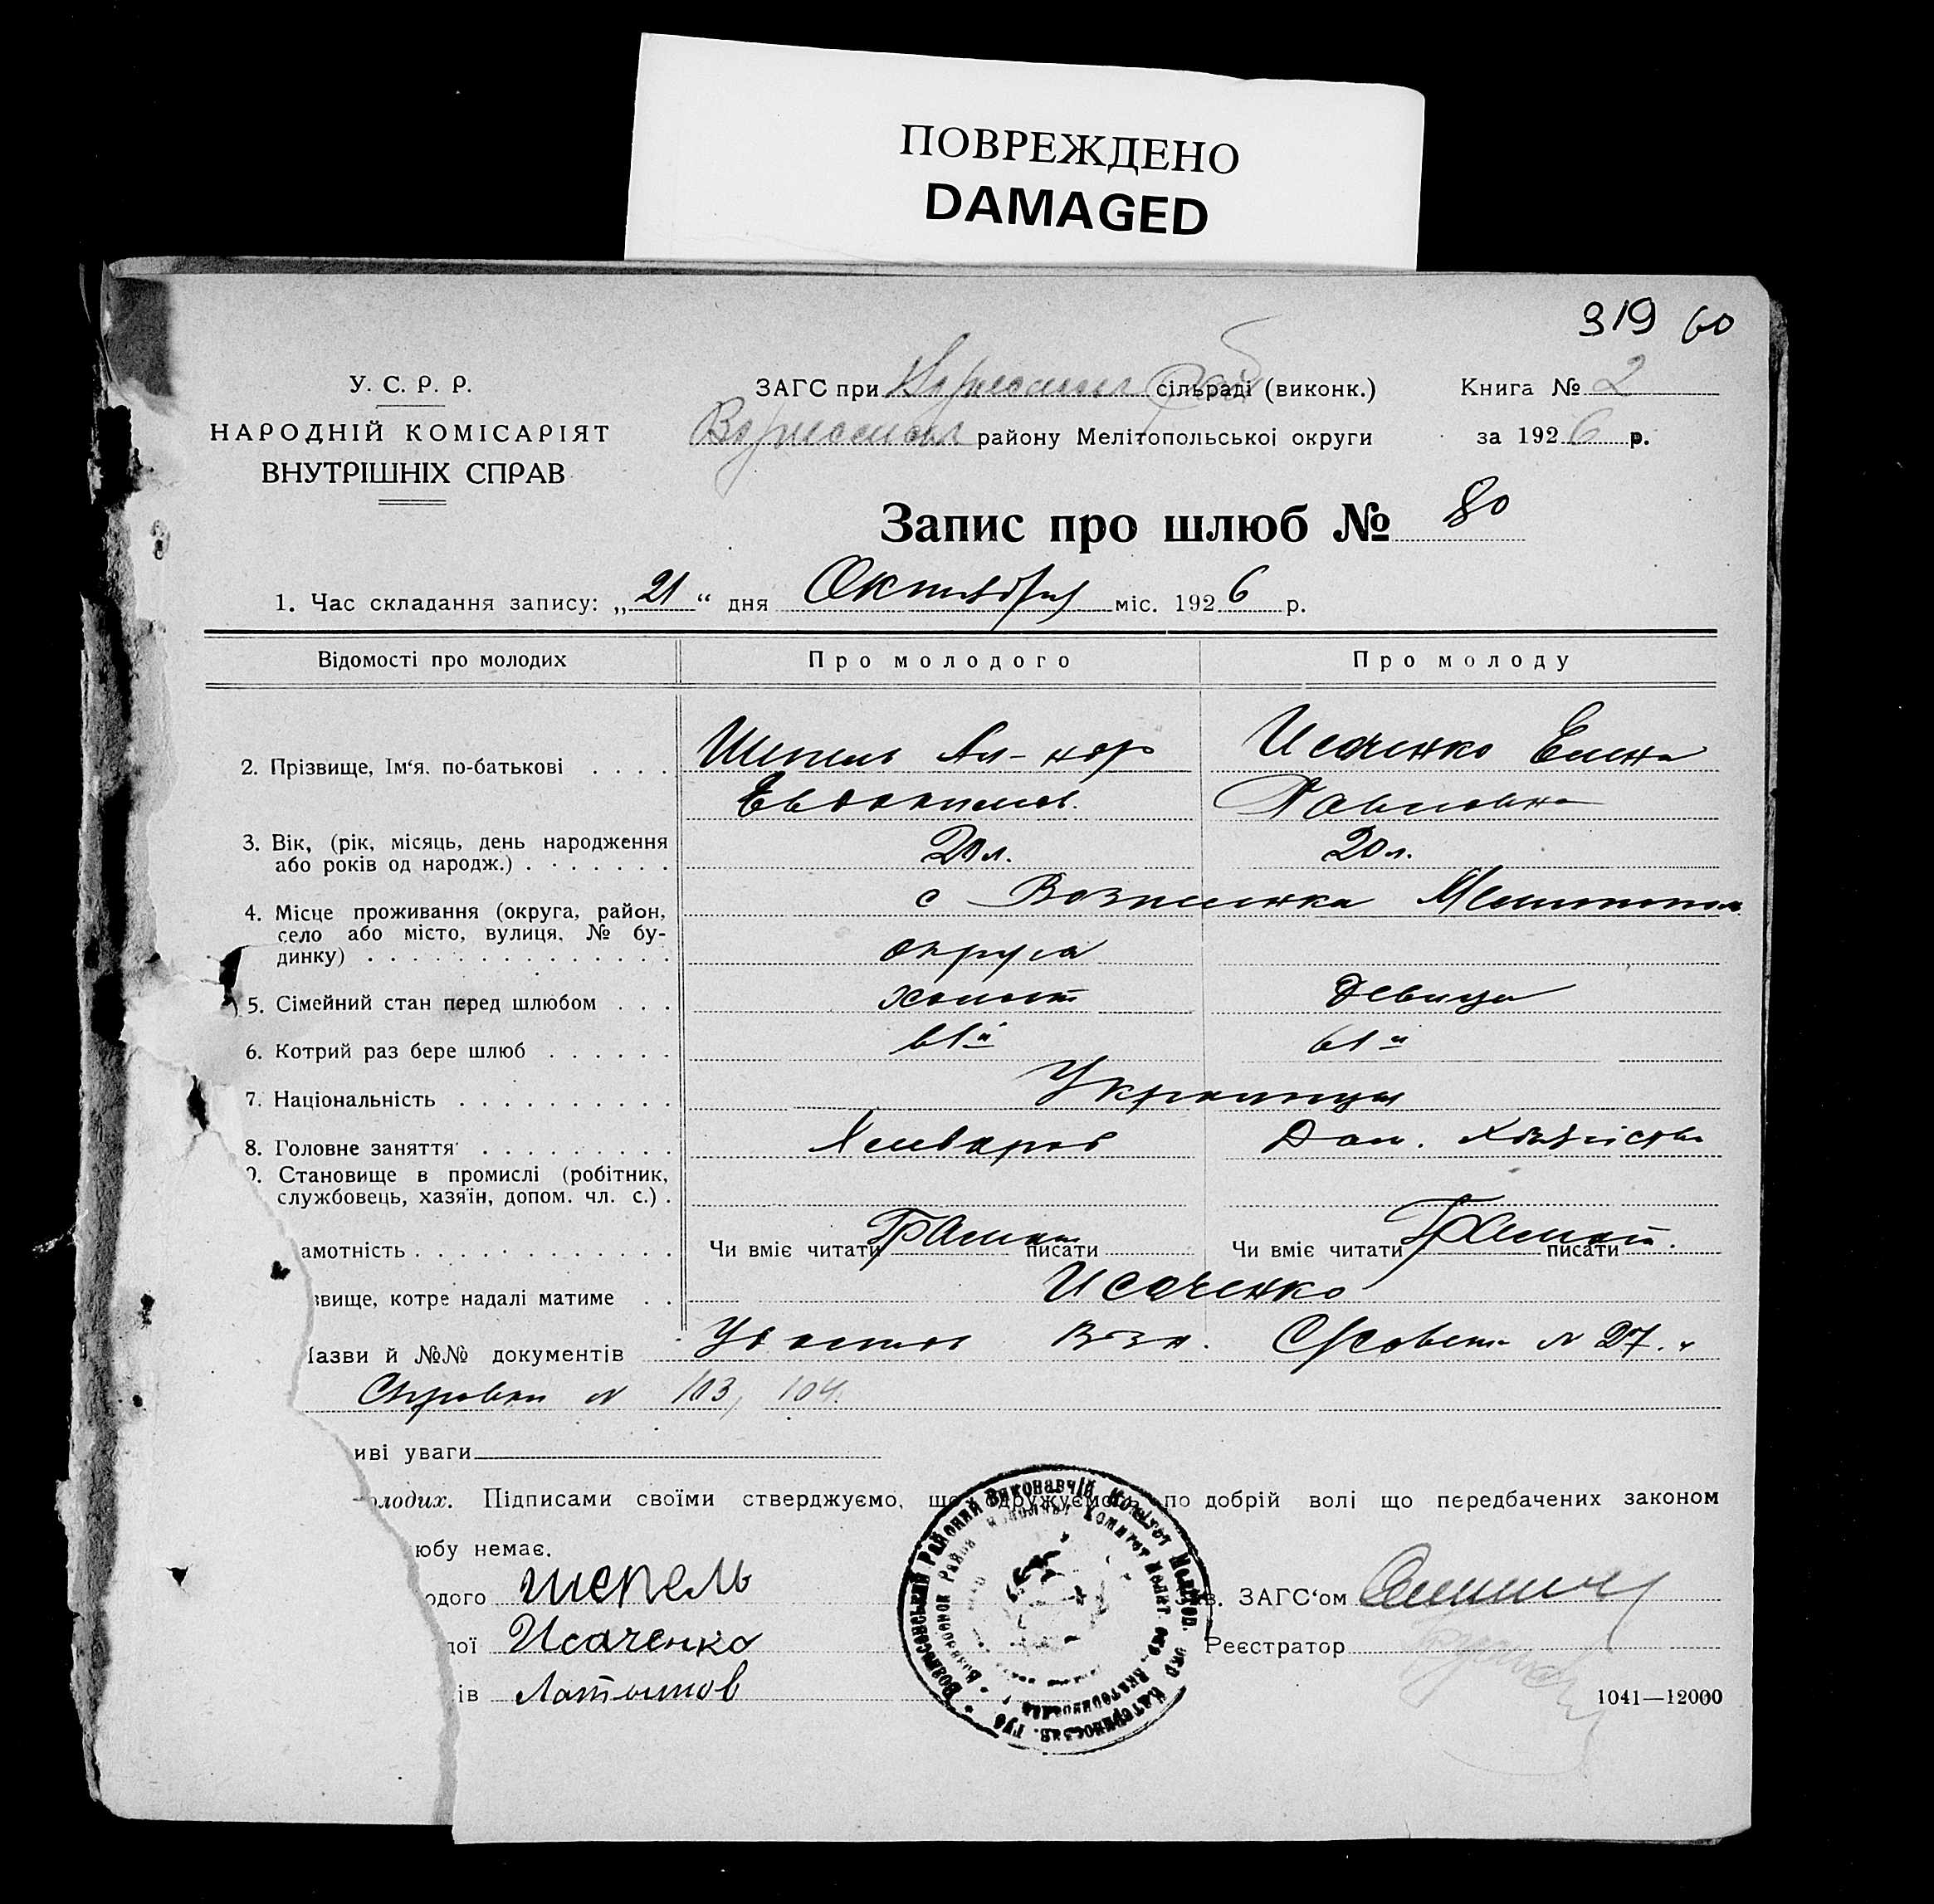 ПОВРЕЖДЕНО
DAMAGED
319 60
У. С. Р. Р.
НАРОДНІЙ КОМІСАРІЯТ
ВНУТРІШНІХ СПРАВ
ЗАГС при сільраді (виконк.) Книга № 2
району Мелітопольськоі округи за 1926 р.
Запис про шлюб № 80
1. Час складання запису: „21“ дня Октября міс. 1926 р.
Відомості про молодих Про молодого Про молоду
2. Прізвище, Ім‘я. по-батькові . . . . Шепель Ал-ндр Исаченко Елена
Евдокимов. Павловна
3. Вік, (рік, місяць, день народження
або років од народж.) . . . . . . . 20 л. 20 л.
4. Місце проживання (округа, район,
село або місто, вулиця, № бу-
динку) . . . . . . . . . . . . . .
с Вознесенка Мелитопол.
округа
5. Сімейний стан перед шлюбом . . . холост девица
6. Котрий раз бере шлюб . . . . . . в 1й в 1й
7. Національність . . . . . . . . . . Украинцы
8. Головне заняття . . . . . . . . . Хлебороб Дом. хозяйство
9. Становище в промислі (робітник,
службовець, хазяїн, допом. чл. с.) .
амотність . . . . . . . . . . . . Чи вміє читати Грамот писати Чи вміє читати Грамот. писати
звище, котре надалі матиме . . Исаченко
Назви й №№ документів Удостов Возн. С/совета № 27. и
Справки № 103, 104.
иві уваги
олодих. Підписами своїми стверджуємо, що одружуємося по добрій волі що передбачених законом
юбу немає.
одого шепель в. ЗАГС‘ом
дої Исаченко Реєстратор
ів
1041—12000